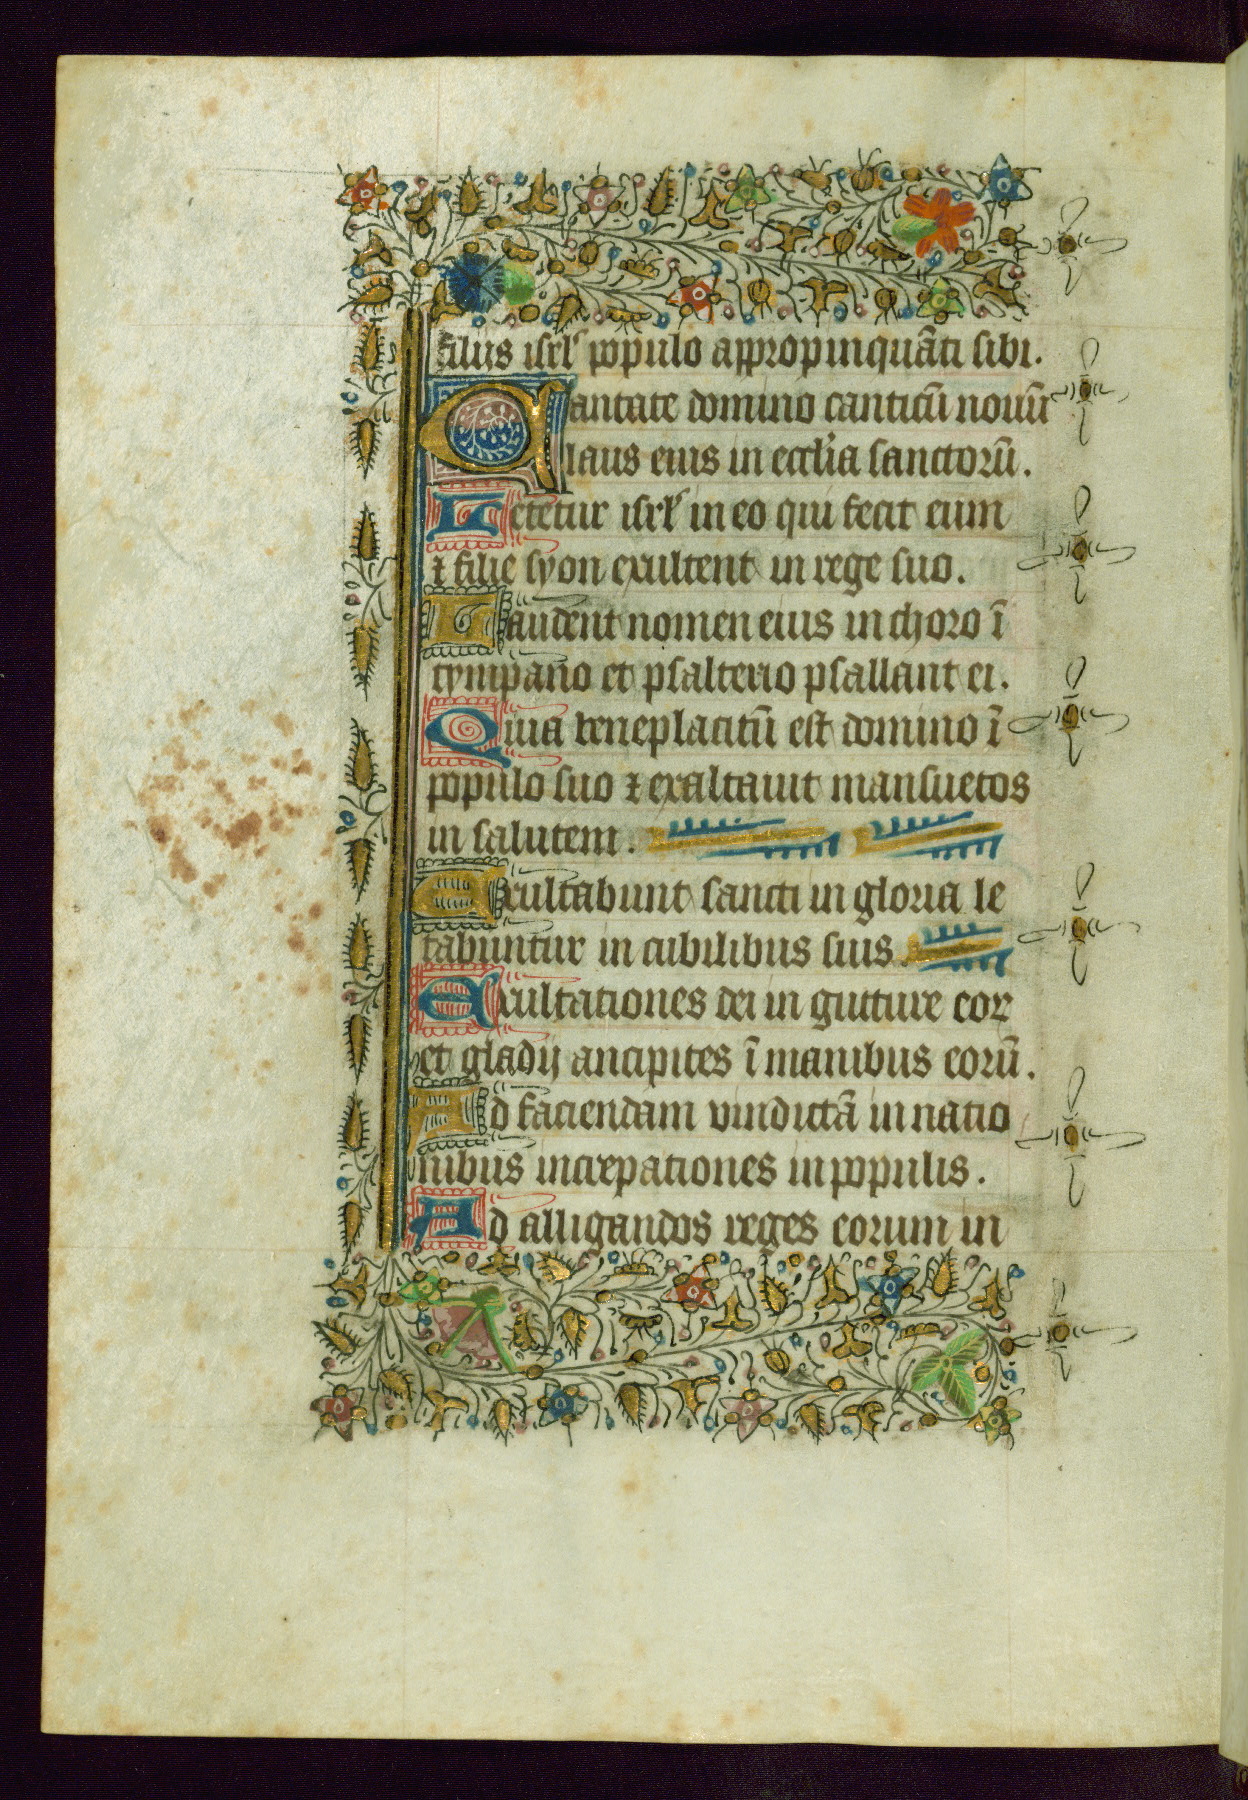 filijs isrl' populo appropinquāti sibi.
Cantate domino canticū nouū
laus eius in eccl'ia sanctorū.
Letetur isrl' in eo qui fecit eum
⁊ filie syon exultent in rege suo.
Laudent nomen eius in choro ī
tympano et psalterio psallant ei.
Quia beneplacitū est domino ī
populo suo ⁊ exaltauit mansuetos
in salutem.
Exultabunt sancti in gloria le
tabuntur in cubilibus suis.
Exultationes dei in gutture eoꝝ
et gladij ancipites ī manibus eorū.
Ad faciendam vindictā in natio
nibus increpationes in populis.
Ad alligandos reges eorum in